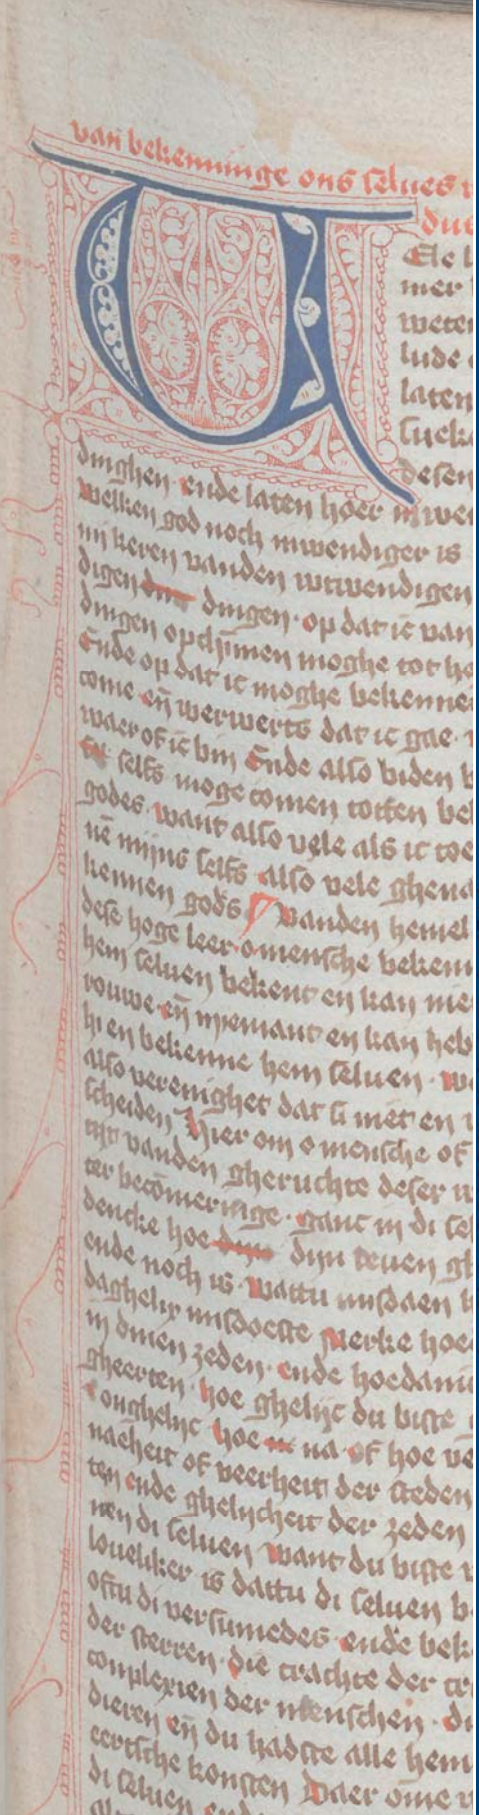 van bekenninge ons selues
Ele
mer
weten
lude
laten
sueke
desen
dinghen ende laten hoer inwe
welken god noch inwendiger is
mi keren vanden wtwendigen
digen dingen · op dat ic van
dingen opclimmen moghe tot he
Ende op dat ic moghe bekennen
come eñ werwerts dat ic gae ·
waer of ic bin Ende also biden
selfs moge comen totten be
godes · want also vele als ic toe
nē mijns selfs also vele ghena
kennen gods vanden hemel
dese hoge leer · o mensche beken
hem seluen bekent en kan nie
rouwe · eñ nyemant en kan heb
hi en bekenne hem seluen · w
also verenighet dat si niet en
scheiden Hier om o mensche of
tijt vanden gheruchte deser w
ter becōmeringe · ganc in di se
dencke hoe dijn leuen gh
ende noch is · wattu misdaen
daghelix misdoeste merke hoe
in dinen zeden · ende hoedani
gheerten · hoe ghelijc du biste
onghelijc hoe na of hoe ve
naeheit of veerheit der steden
ten ende ghelijcheit der zeden
nen di seluen want du biste
loueliker is dattu di seluen b
oftu di versumedes · ende bek
der sterren · die crachte der cr
complexien der menschen · di
dieren eñ du hadste alle hem
eertsche konsten Daer ōme
di seluen ende